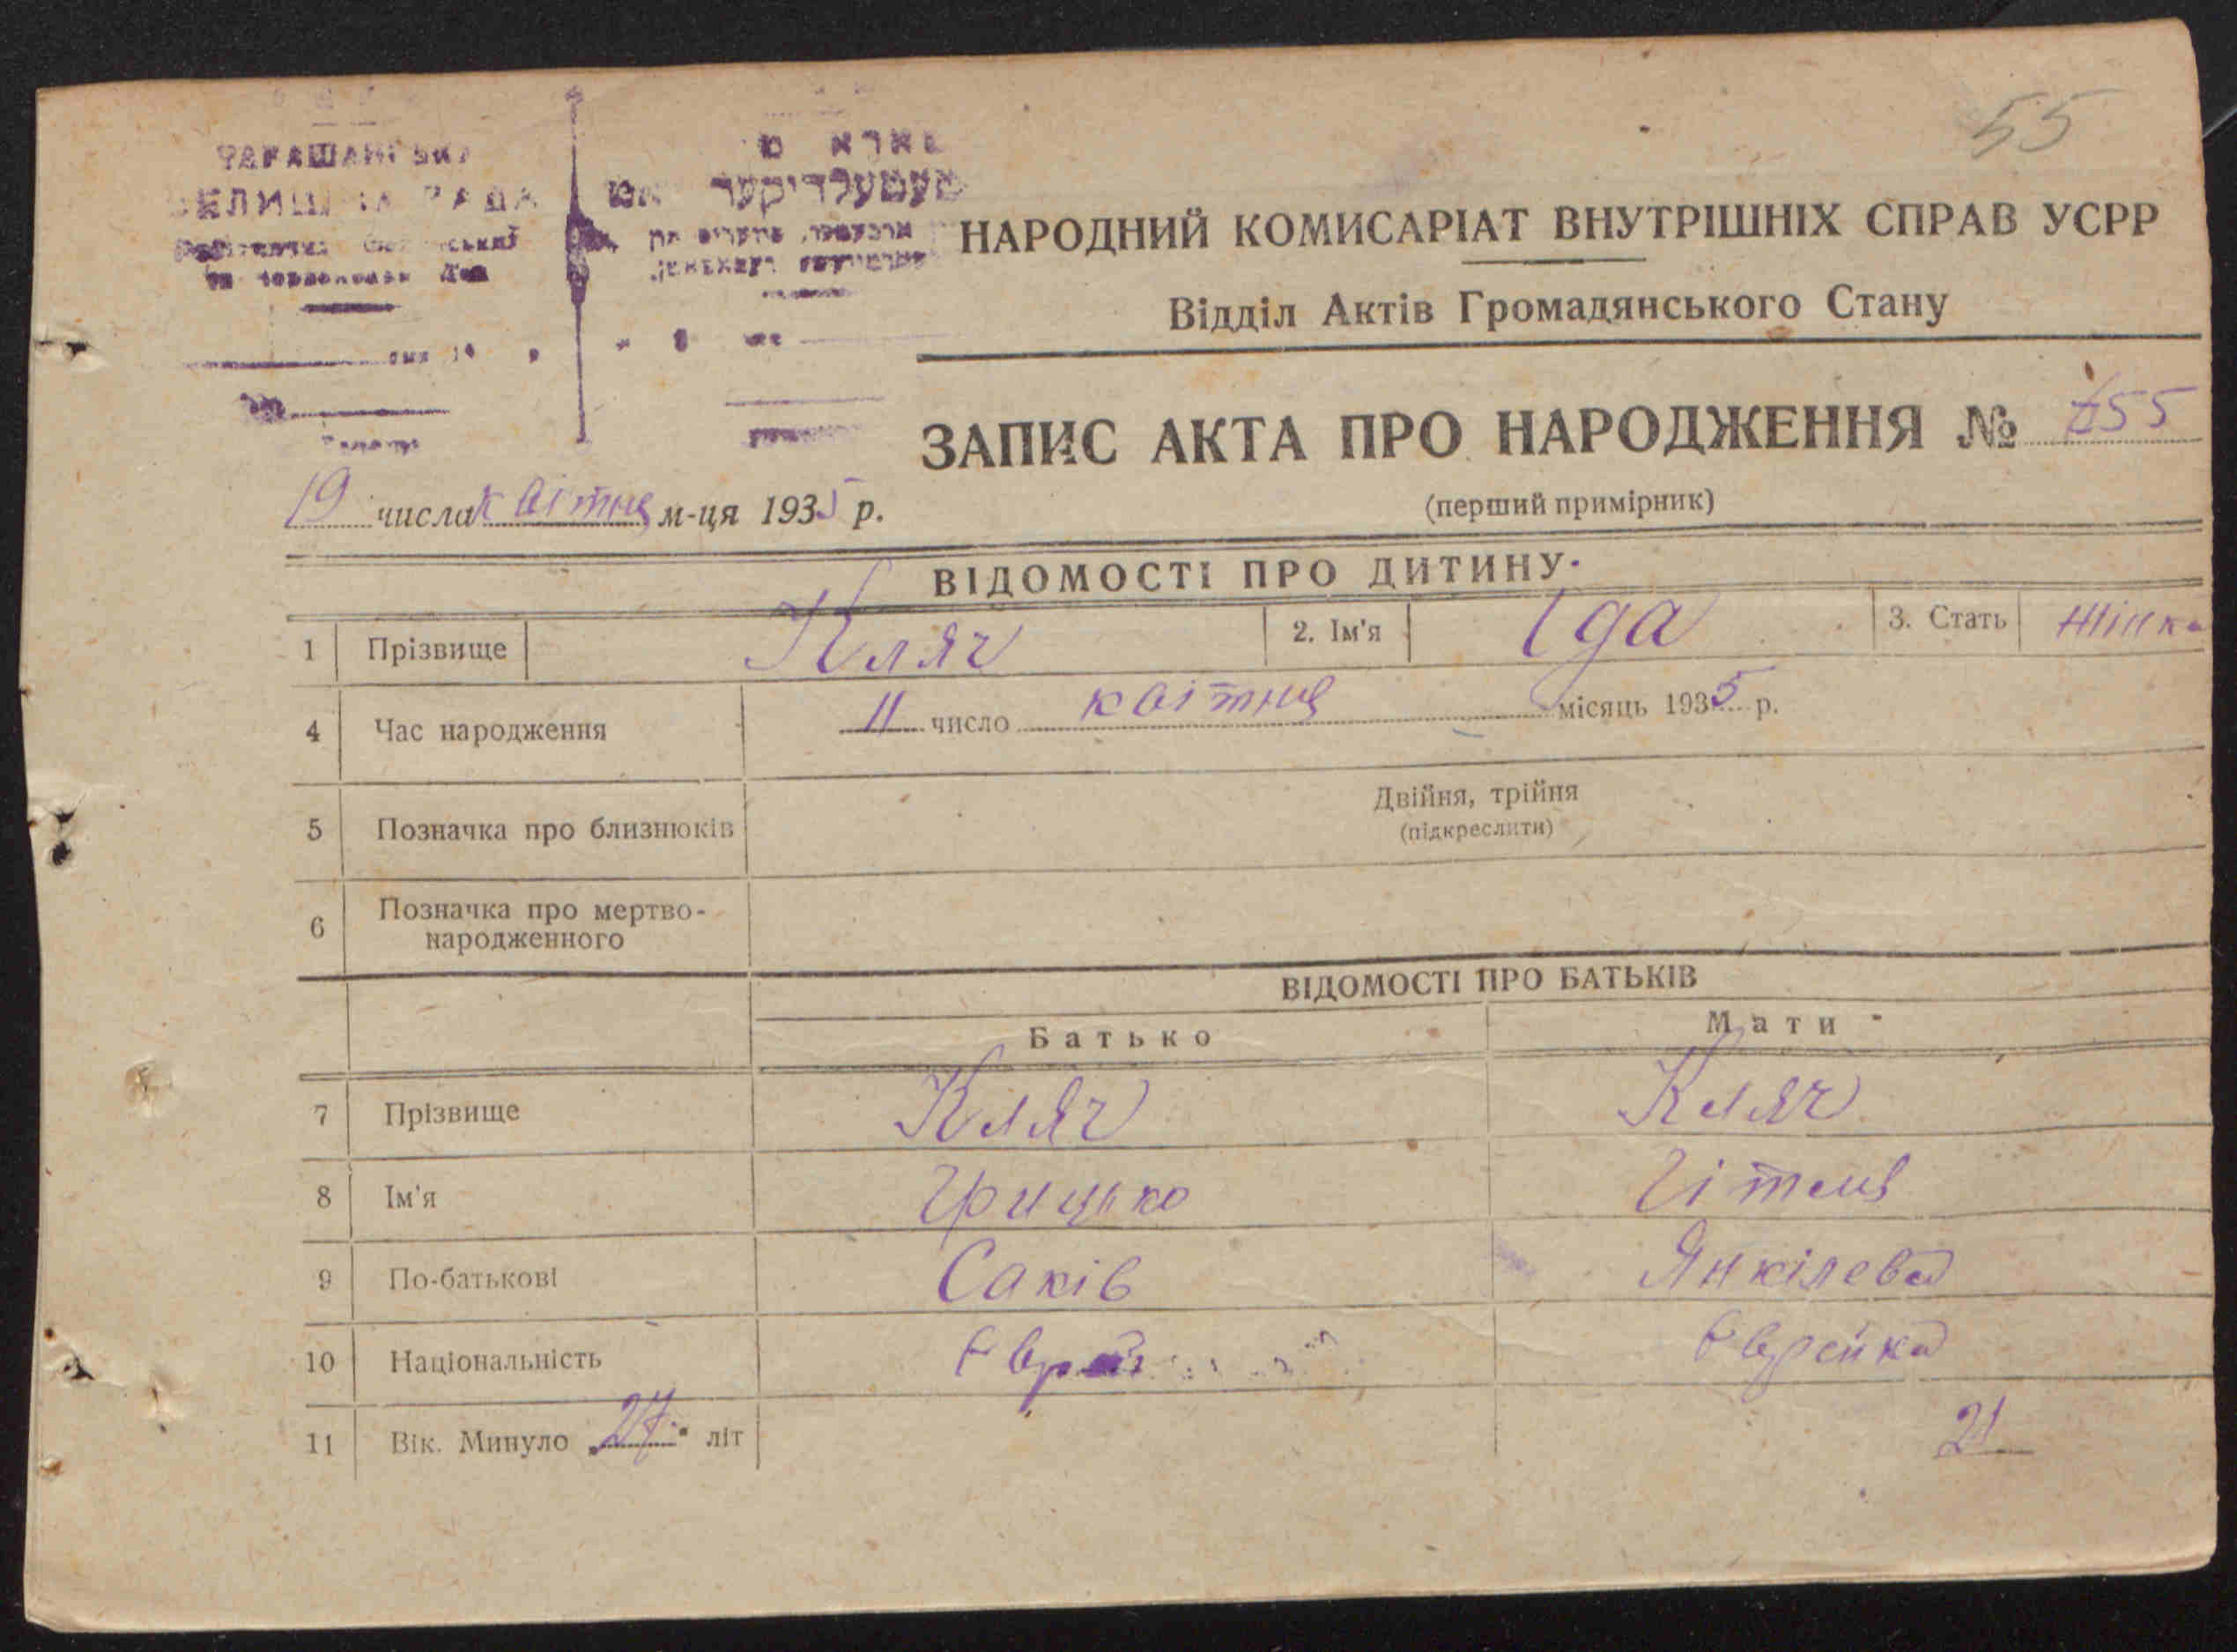 55
РАДА
НАРОДНИЙ КОМИСАРІАТ ВНУТРІШНІХ СПРАВ УСРР
Відділ Актів Громадянського Стану
ЗАПИС АКТА ПРО НАРОДЖЕННЯ № 55
(перший примірник)
19 числа квітня м-ця 1935 р.
ВІДОМОСТІ ПРО ДИТИНУ.
1 Прізвище Кляч 2. Ім'я Іда 3. Стать Жінка
4 Час народження 11 число квітня місяць 1935 р.
5 Позначка про близнюків Двійня, трійня
(підкреслити)
6 Позначка про мертво-
народженного
ВІДОМОСТІ ПРО БАТЬКІВ
Батько Мати
7 Прізвище Кляч Кляч
8 Ім'я Грицько Гітля
9 По-батькові Саків Янкілева
10 Національність Єврей Єврейка
11 Вік. Минуло 27 літ 21